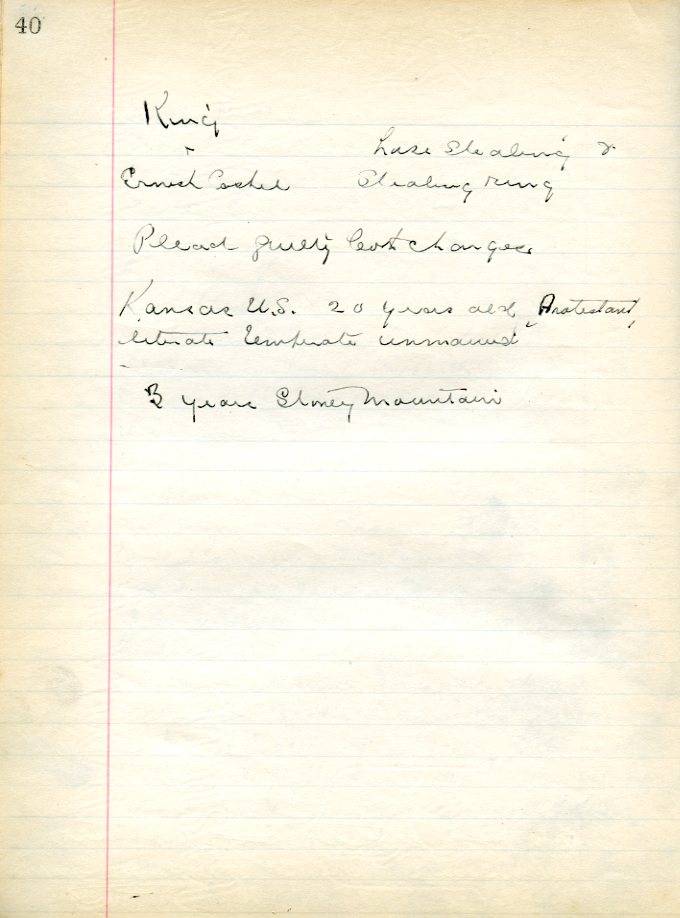 40
King
v
Ernest Costel Horse Stealing &
Stealing ring
Plead guilty both charges
Kansas U.S. 20 years old, Protestant,
literate temperate unmarried
3 years Stoney Mountain